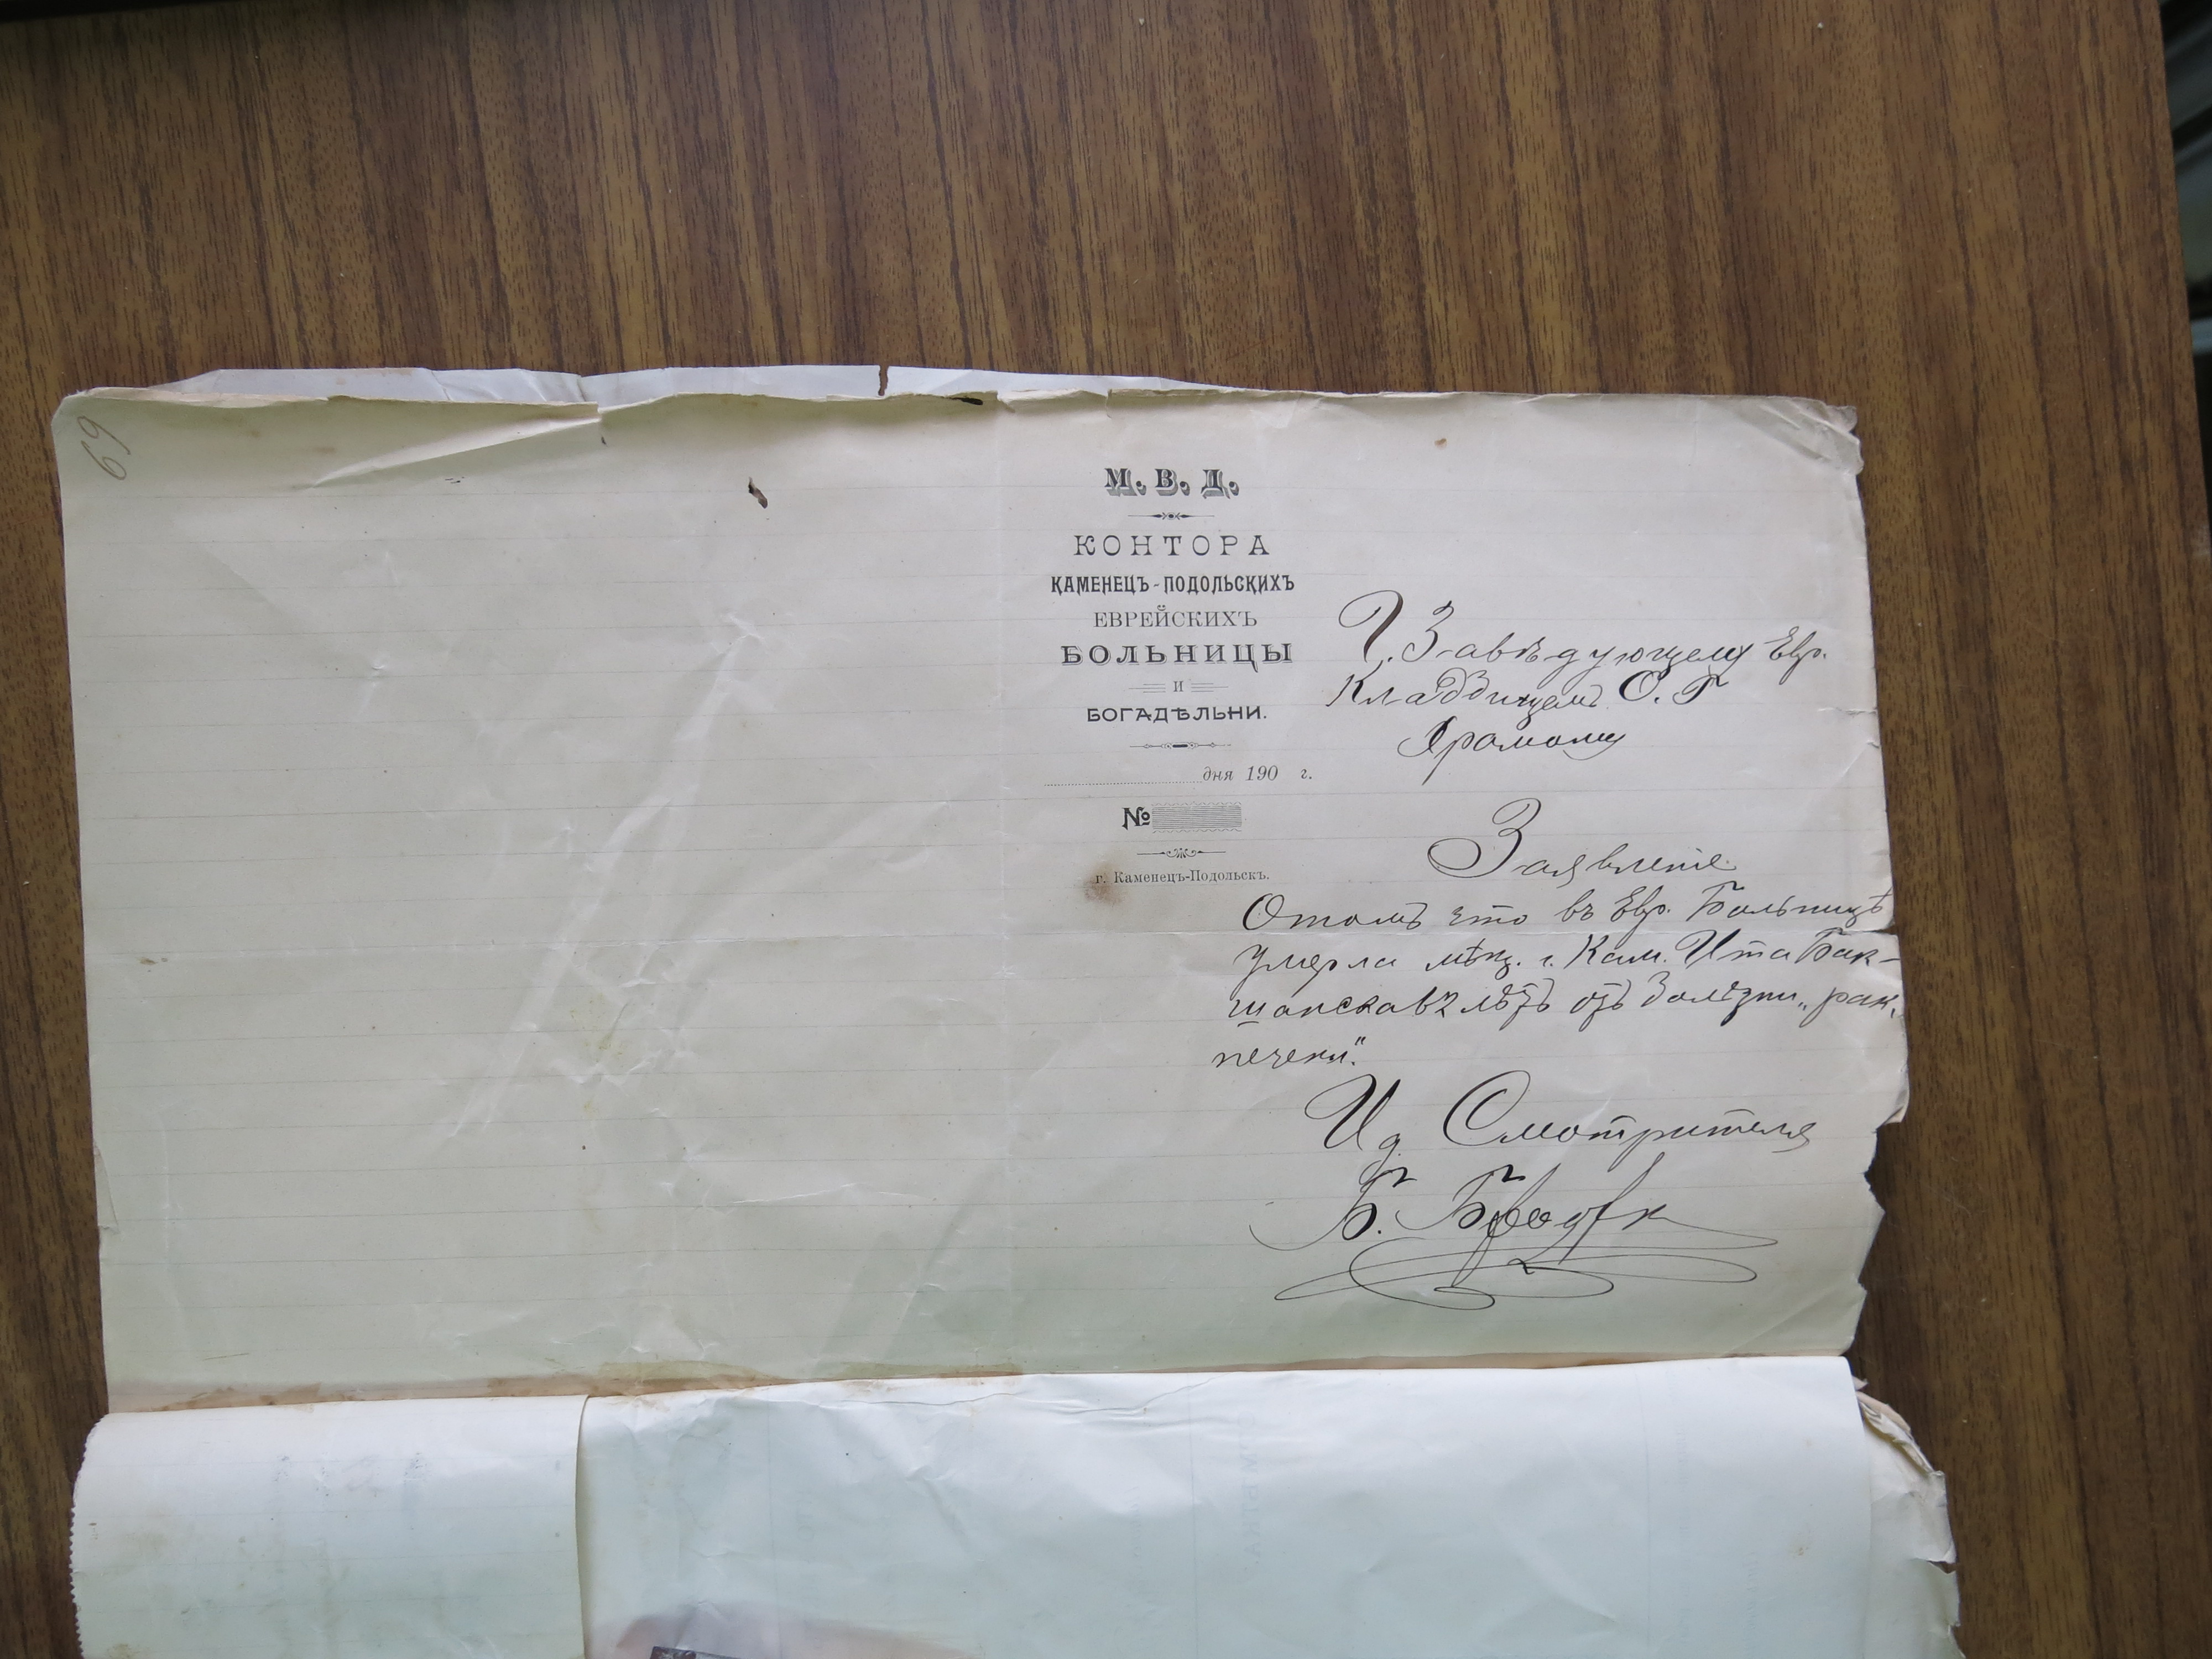 69
М. В. Д.
КОНТОРА
КАМЕНЕЦЪ-ПОДОЛЬСКИХЪ
ЕВРЕЙСКИХЪ
БОЛЬНИЦЫ
И
БОГАДѢЛЬНИ.
дня 190 г.
№
г. Каменецъ-Подольскъ.
Г. Завѣдующему Евр.
Кладбищемъ О. Г
Заявленіе
Отомъ что въ Евр. Больницѣ
умерла мѣщ. г. Кам. Ита Бак-
шанская лѣтъ отъ болѣзни „рак
печени".
Ид Смотрителя
Б.